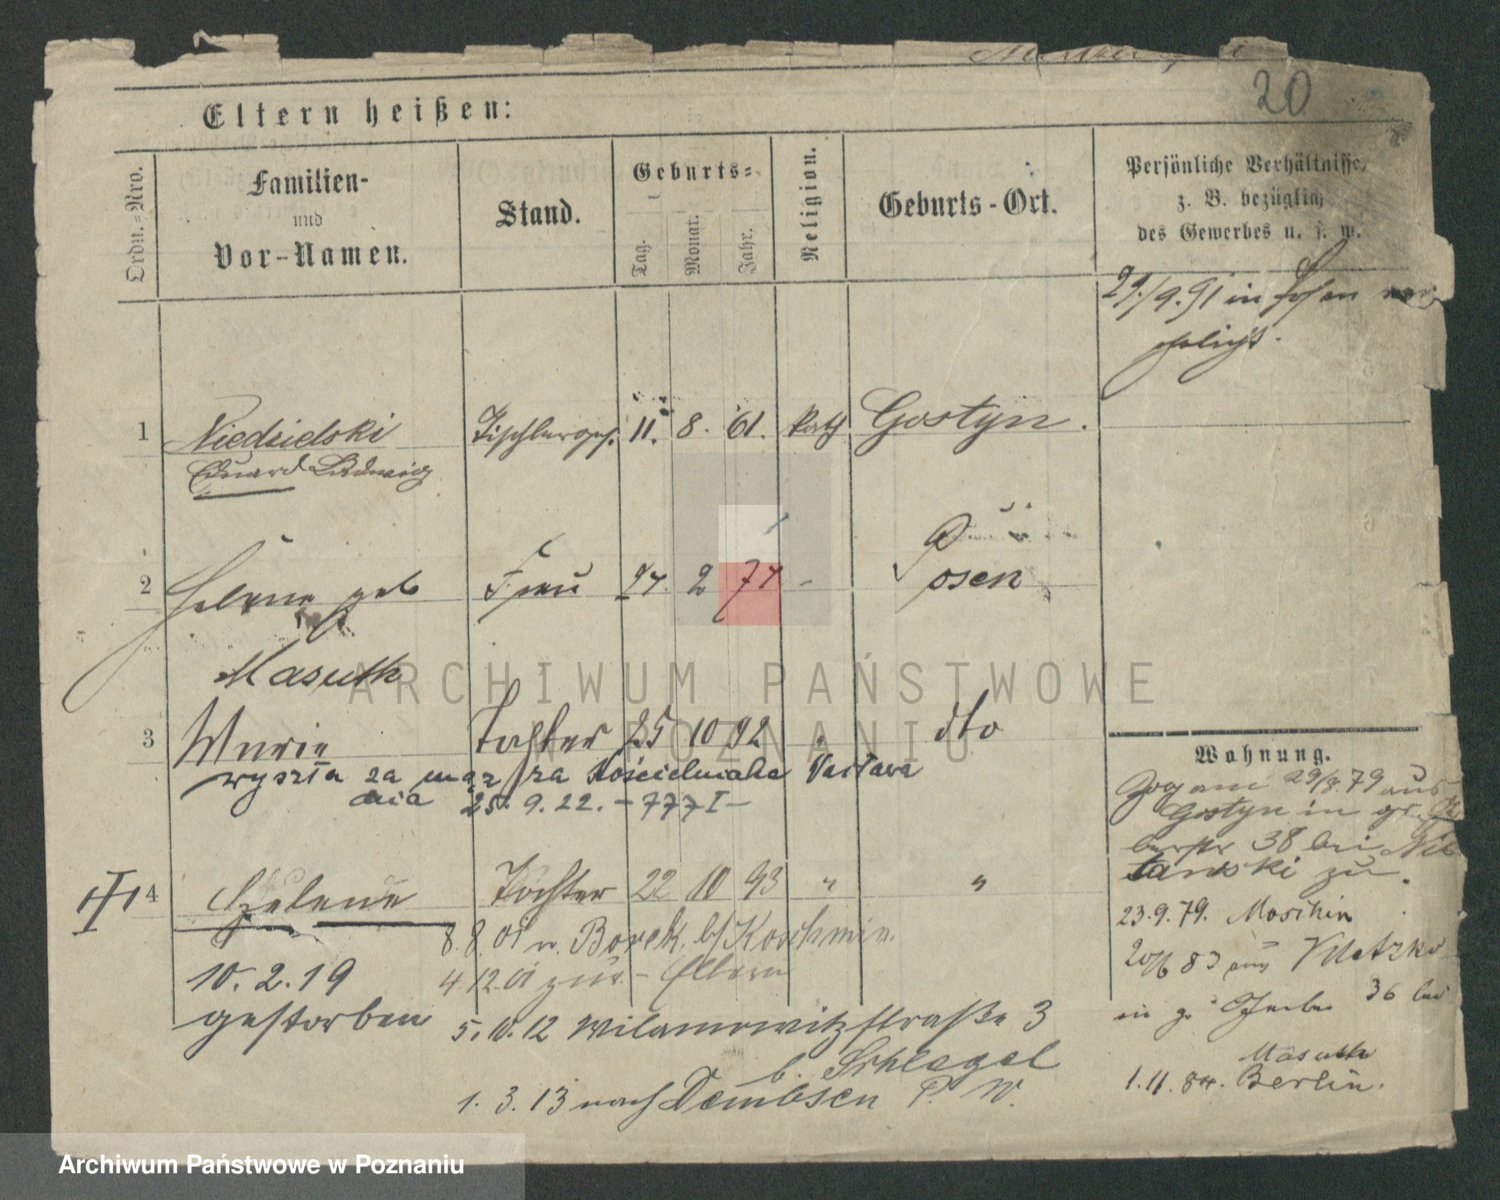 20
Eltern heißen:
Ordn.-Nro.
Familien-
und
Vor-Namen.
Stand.
Geburts-
Tag.
Monat.
Jahr.
Religion.
Geburts-Ort.
Persönliche Verhältnisse,
z. B. bezüglich
des Gewerbes u. s. w.
29./9.91 in Posen
1 Niedzielski Tischlerges. 11. 8. 61. kath Gostyn.
Eduard Ludwig
2 Helene geb Frau 27. 2 71 - Posen
Masuth
3 Marie Tochter 25 10 92 " dto
wyszła za mąż za Kościelniaka Vacława
dnia 25. 9. 22. - 777 I -
4 Helene Tochter 22 10 93 " "
8.8.01 n. Borek b/Koschmin.
10.2.19 4 12.01 zur. - Eltern
gestorben 5.10.12 Wilamowitzstraße 3
b. Schlegel
1. 3. 13 nach Dembsen P. W.
Wohnung.
Zog am 29/8.79 aus
Gostyn in gr.
38 bei
zu.
23.9.79. Moschin
20/6 83 aus
in gr. Gerber 36 bei
Masuth
1.11.84. Berlin.
ARCHIWUM PAŃSTWOWE
W POZNANIU
Archiwum Państwowe w Poznaniu